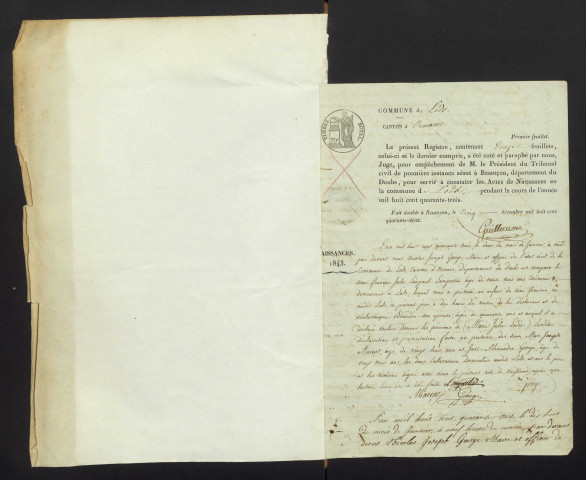 COMMUNE de Lods
CANTON d'Ornans
Premier feuillet.
Le présent Registre, contenant feuillets,
celui-ci et le dernier compris, a été coté et paraphé par nous,
Juge, pour empêchement de M. le Président du Tribunal
civil de première instance séant à Besançon, département du
Doubs, pour servir à constater les Actes de Naissances en
la commune de Lods pendant le cours de l'année
mil huit cent quarante-trois.
Fait double à Besançon, le cinq décembre mil huit cent
quarante-deux.
Guillaume
TIMBRE ROYAL
AISSANCES.
1843.
L'an mil huit cent quarante trois, le deux du mois de janvier, à midi
par devant nous Nicolas Joseph George Maire et officier de l'état civil de la
Commune de Lods, Canton d'Ornans, Département du Doubs est comparu le
sieur François
domicilié à Lods, lequel nous a présenté un enfant du sexe féminin, né
audit Lods, le présent jour à dix heures du matin, de lui déclarant et de
son épouse, âgée de quarante ans et auquel il a
déclaré vouloir donner les prénoms de Marie Julie
déclaration et présentation faites en présence des sieurs Marc Joseph
Maron, âgé de vingt huit ans et Alexandre George, âgé de
vingt neuf ans, les deux domiciliés audit Lods et ont le père
et les témoins signé avec nous le présent acte de naissance, après que
lecture leur en a été faite
Maron George
L'an mil huit cent quarante trois, le dix huit
du mois de Janvier, à neuf heures du matin, par devant
nous Nicolas Joseph George Maire et officier de